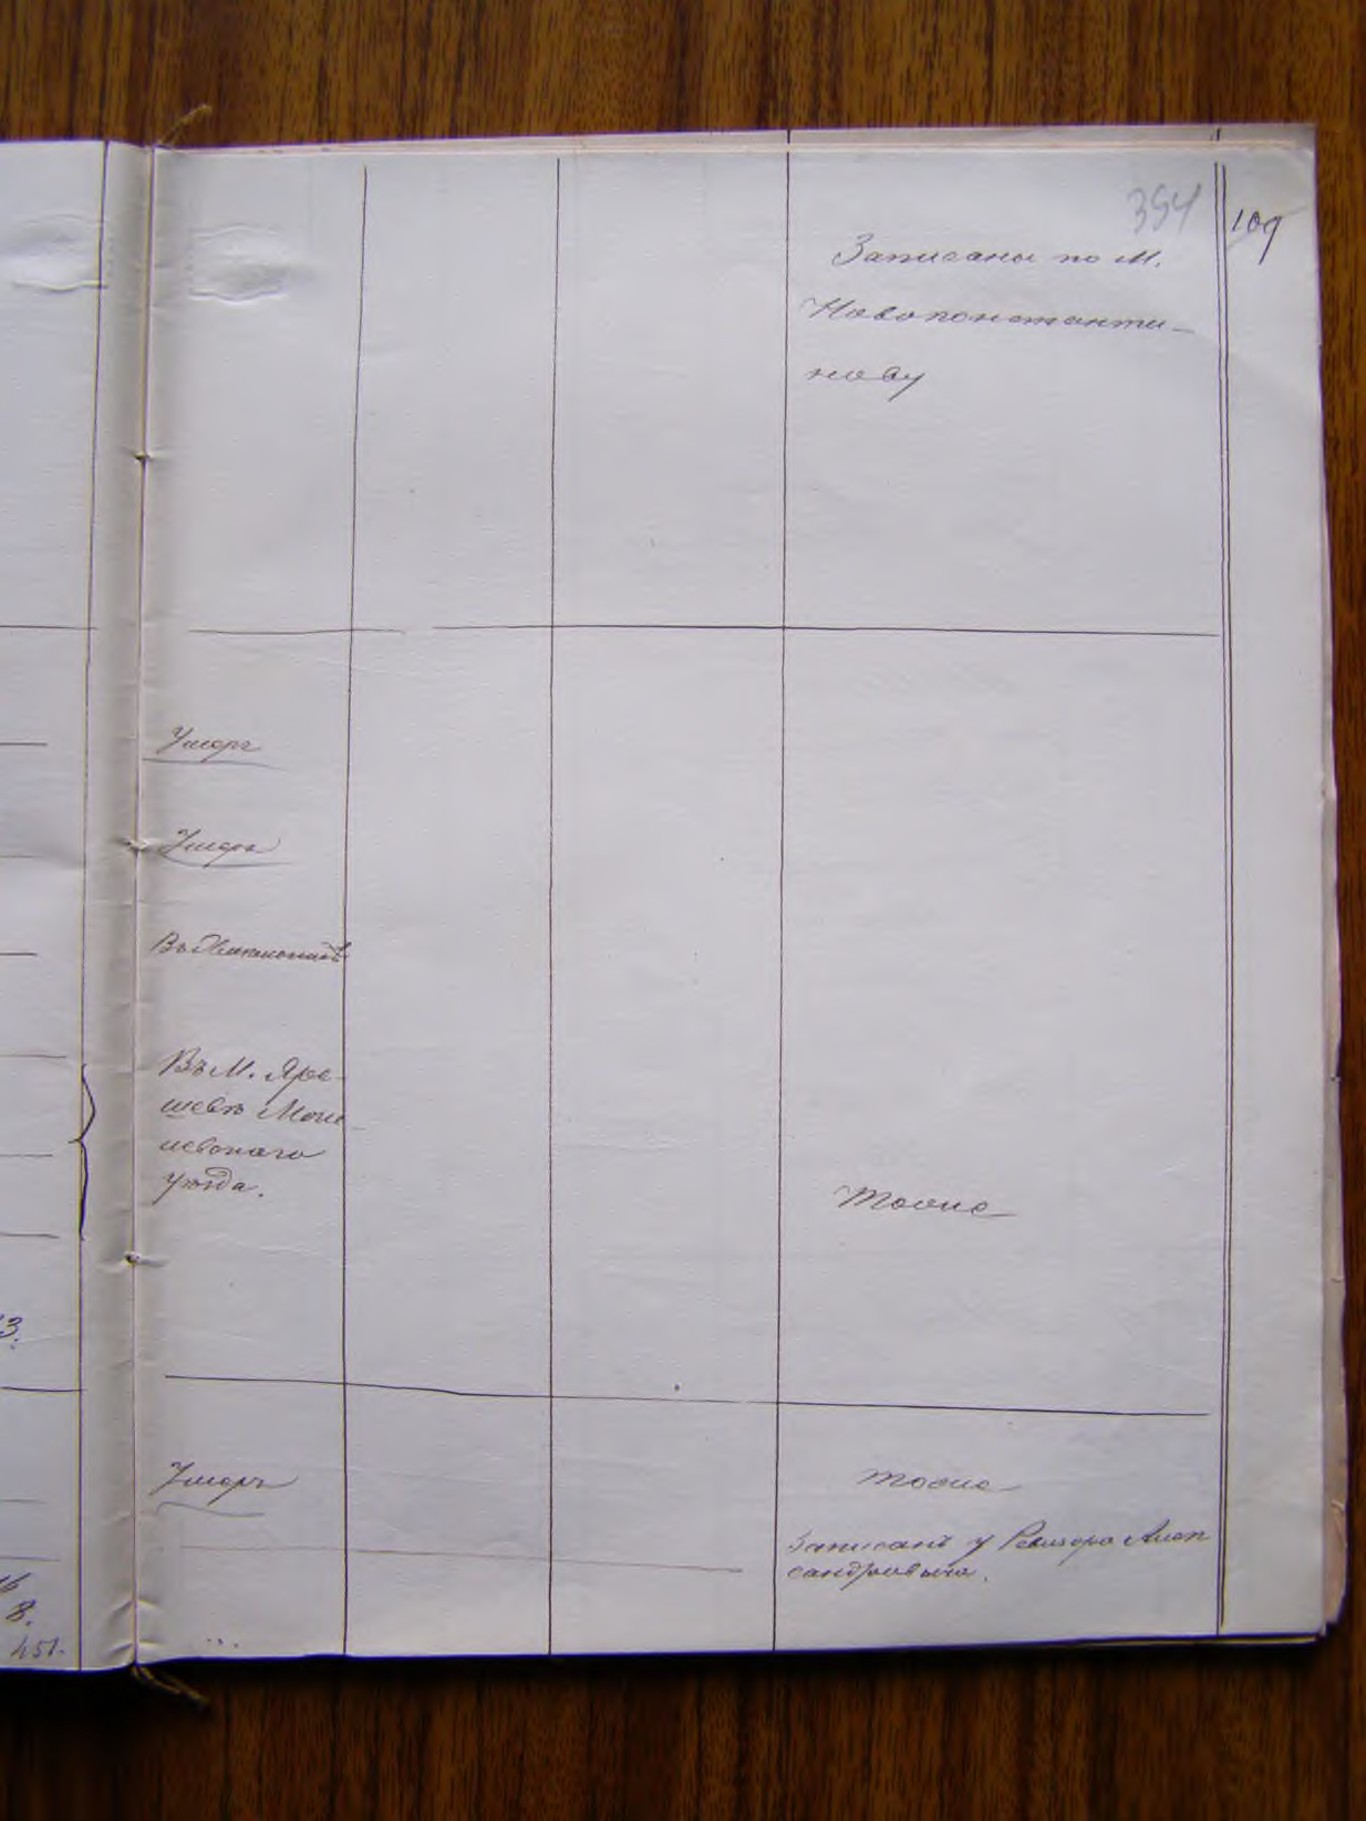 394
109
Записаны по М.
Новоконстанти-
нову
Умеръ
Умеръ
Въ
Въ М. Яро-
шевѣ Моги-
левскаго
уѣзда.
Тоже
3.
Умеръ
Тоже
Записанъ у Ревизора Алек
сандровича.
8.
451.